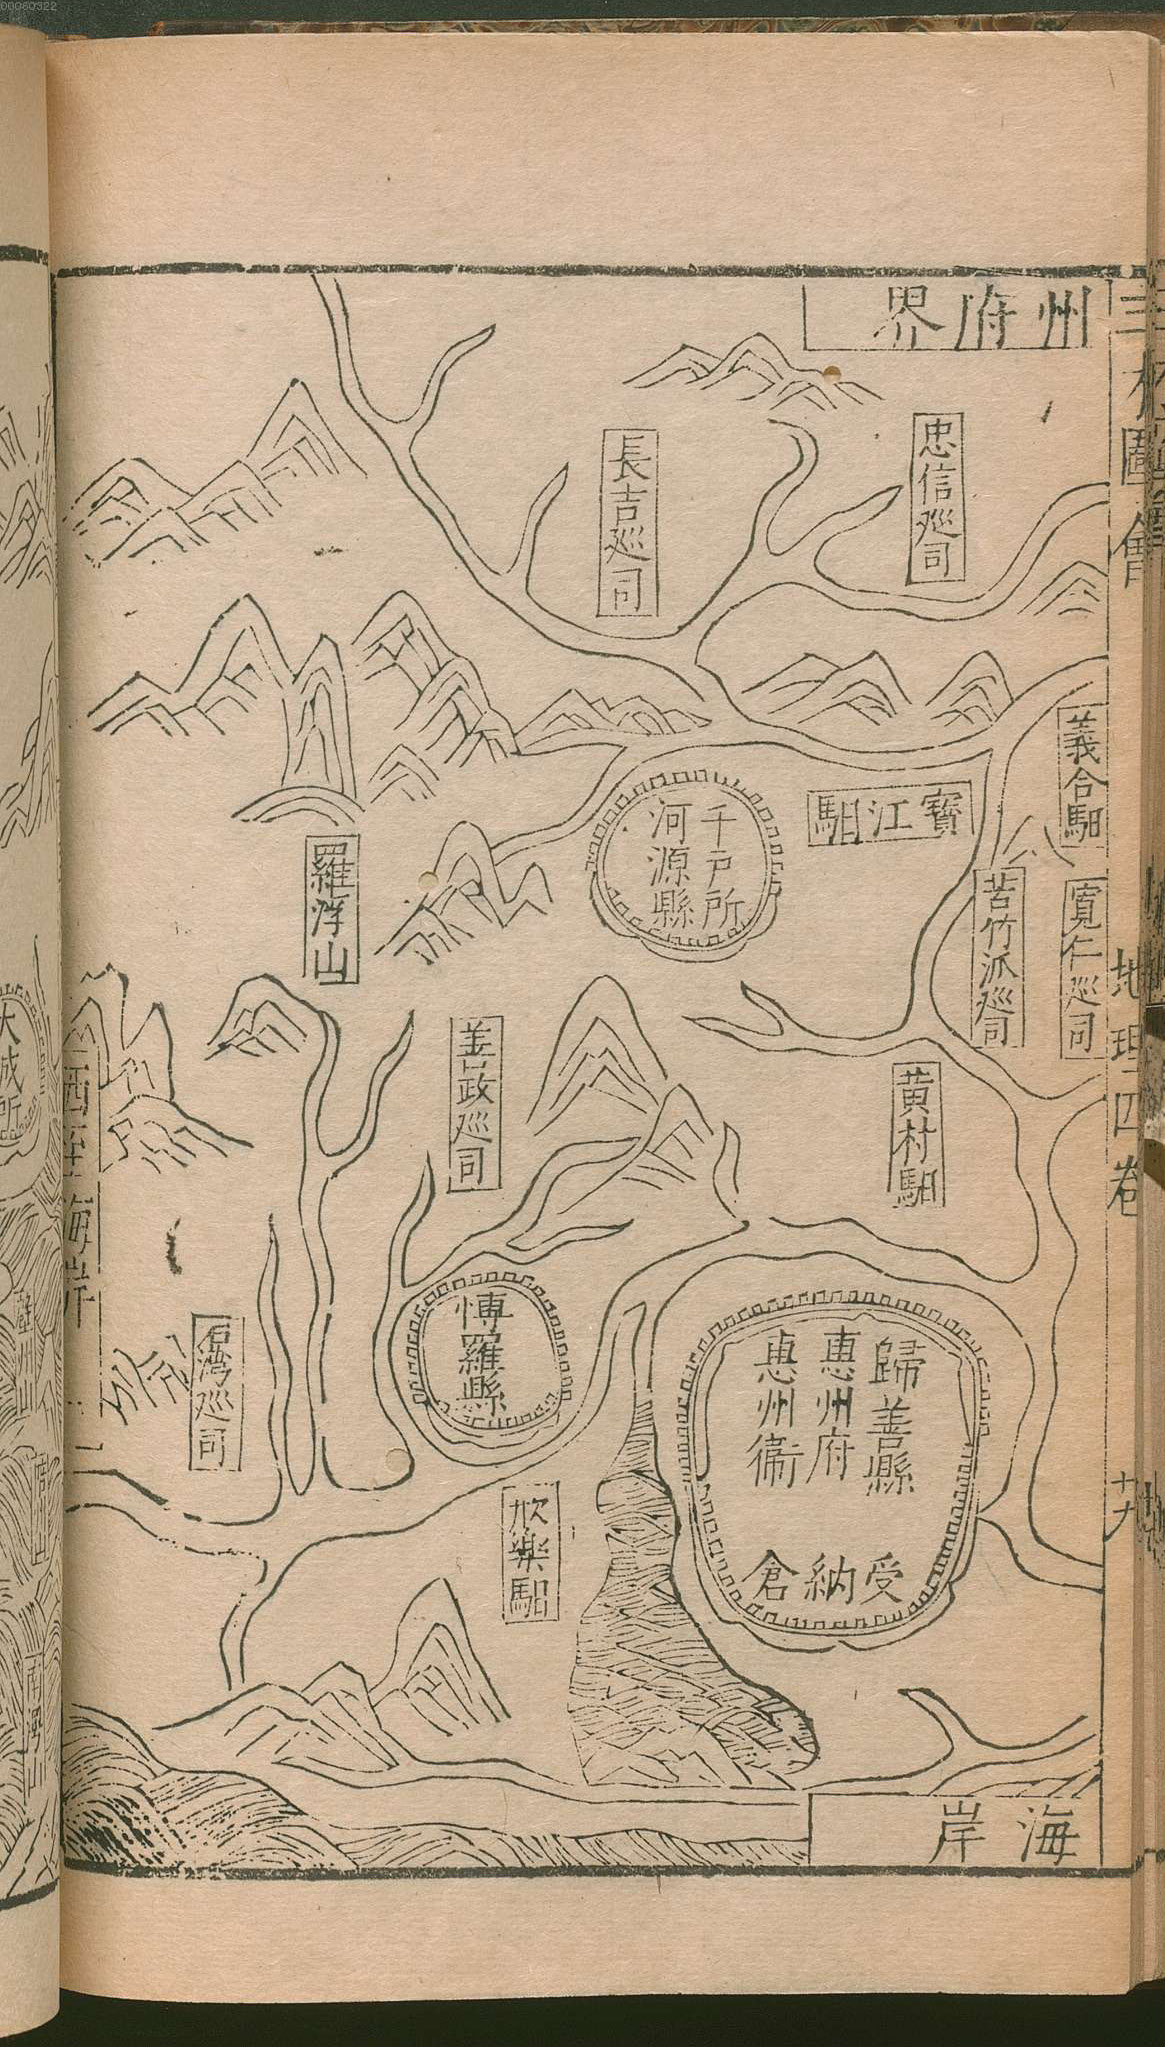 00060322
三才圖會
地理四卷
州府界
忠信巡司
長吉巡司
義合馹
寶江馹
千戶所
河源縣
寬仁巡司
苦竹派巡司
羅浮山
黄村馹
善政巡司
歸善縣
惠州府
惠州衛
受納倉
博羅縣
石湾巡司
欣樂馹
西至海岸
海岸
大成所